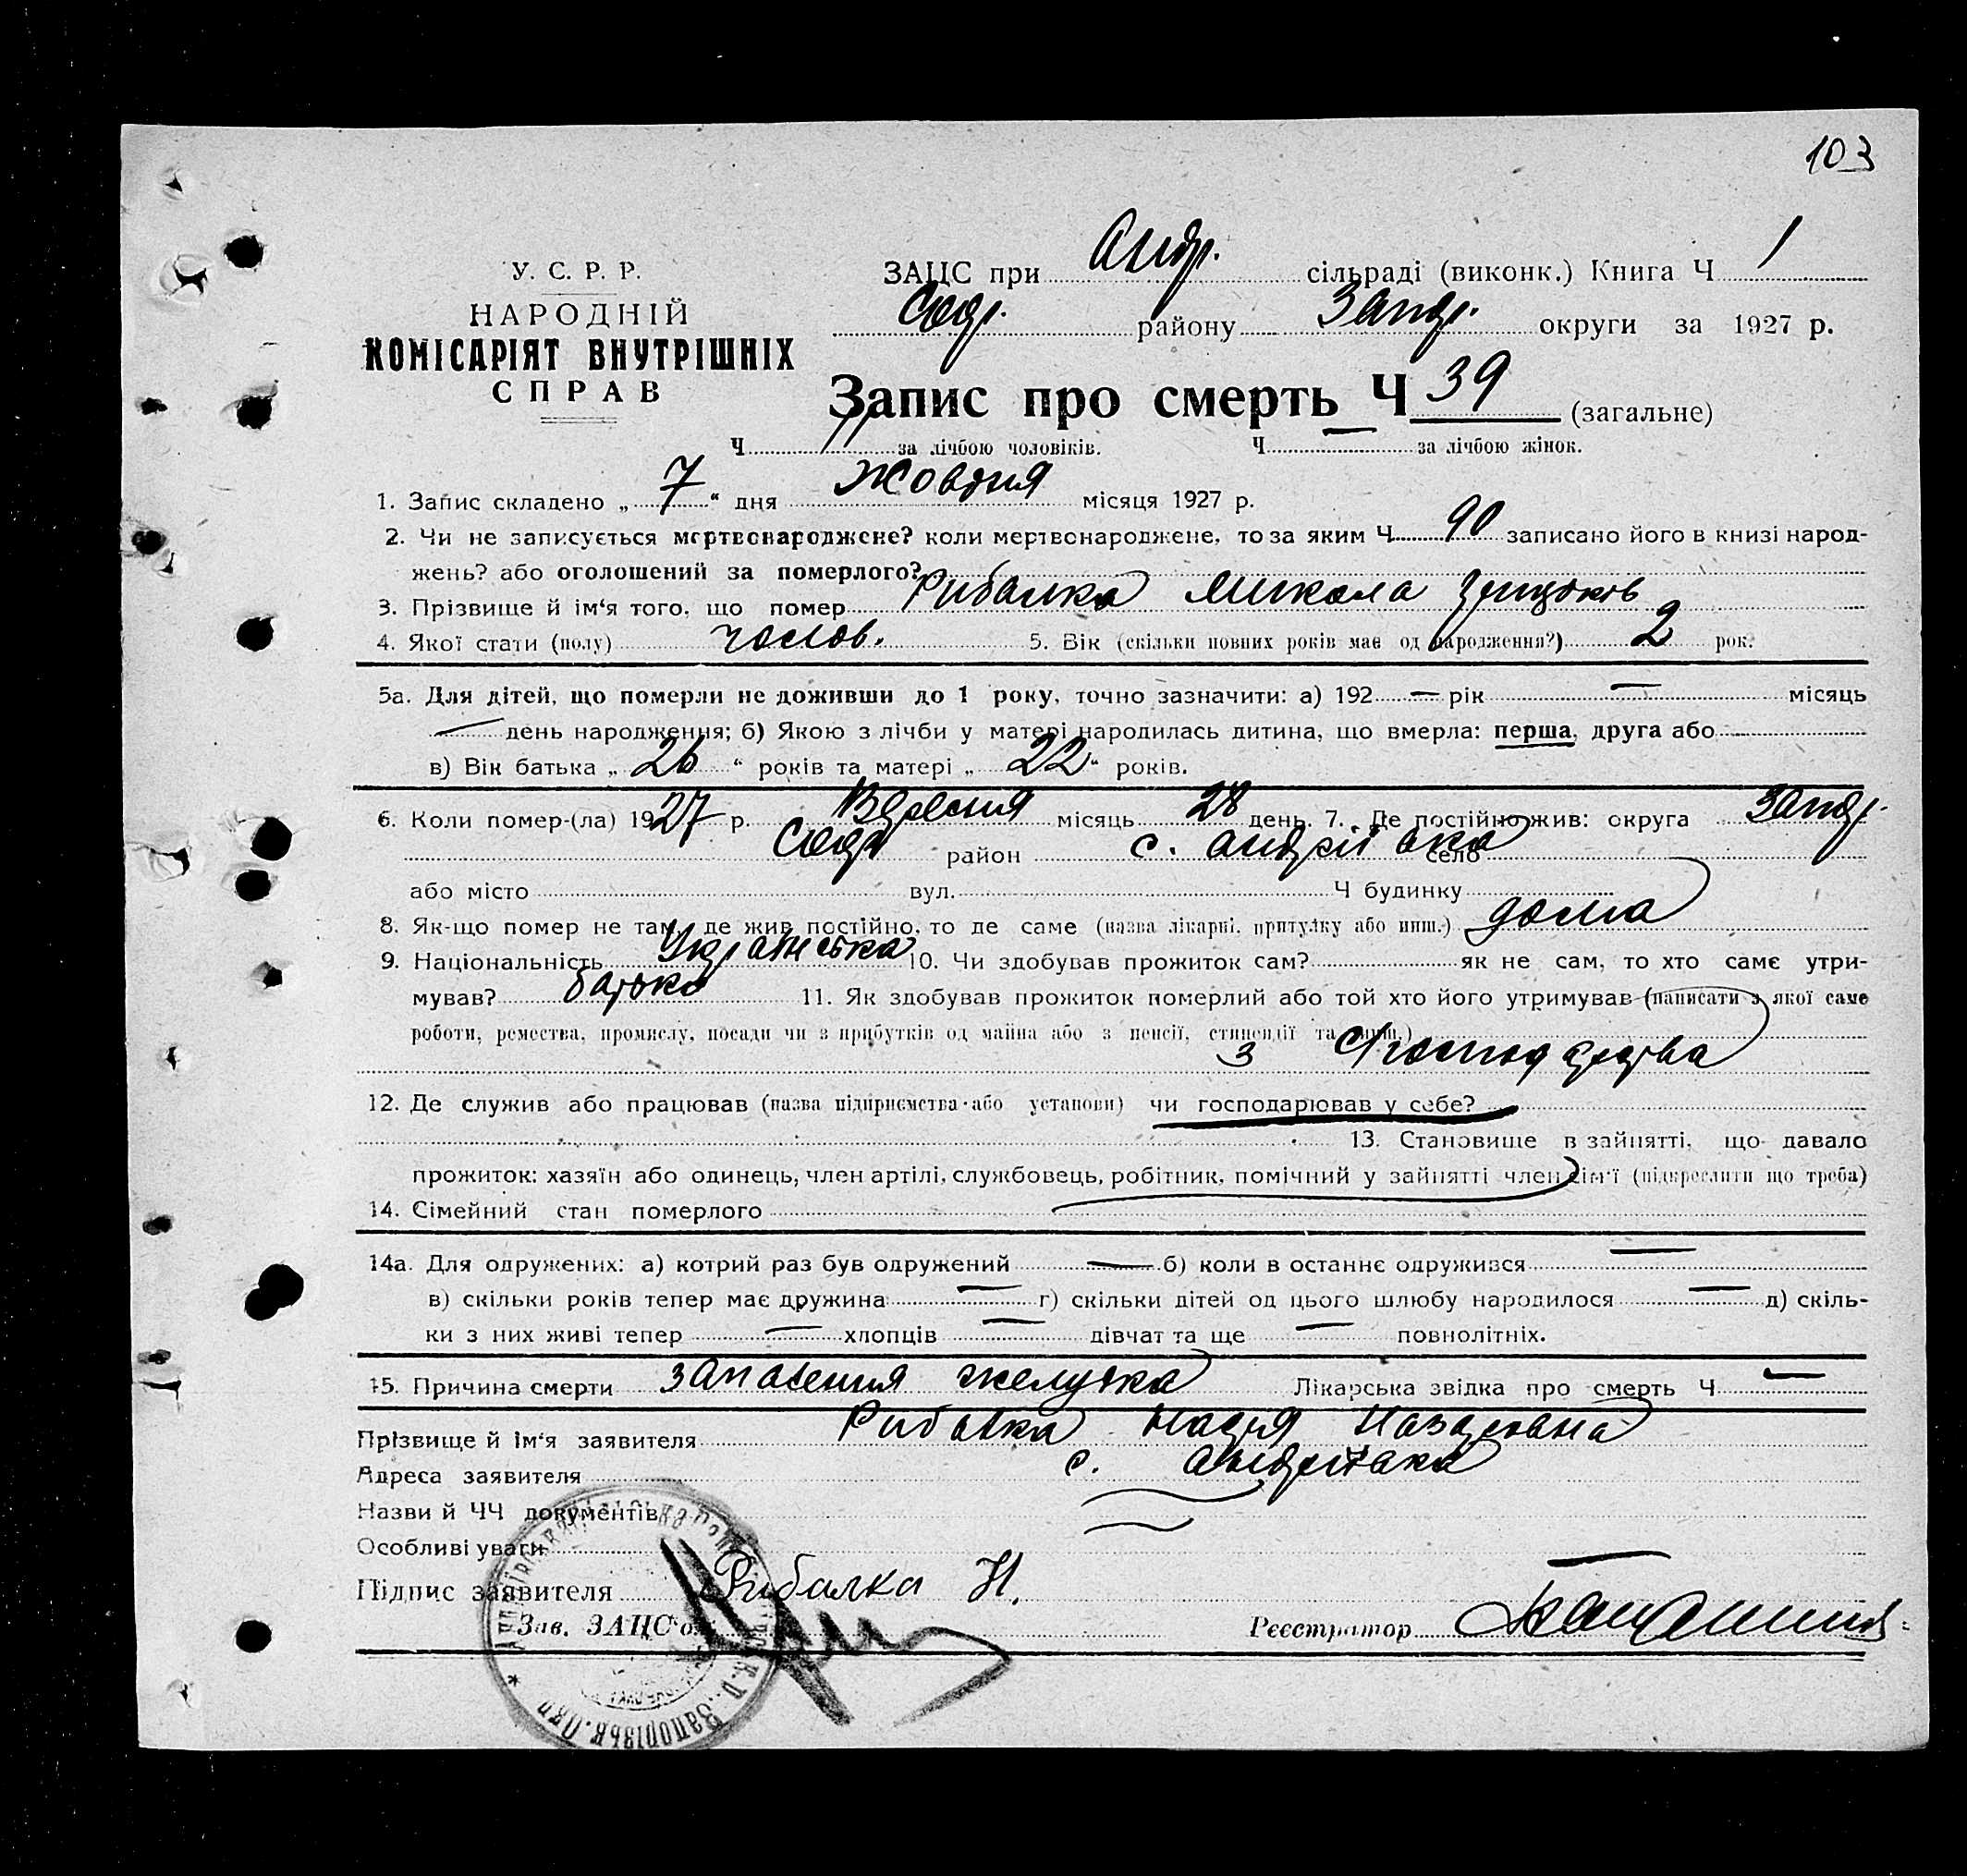 103
У. С. Р. Р.
НАРОДНІЙ
КОМІСАРІЯТ ВНУТРІШНІХ
СПРАВ
ЗАЦС при Андр. сільраді (виконк.) Книга Ч 1
району Запор. округи за 1927 р.
Запис про смерть Ч 39 (загальне)
Ч 11 за лічбою чоловіків. Ч — за лічбою жінок.
1. Запис складено „ 7 “ дня Жовтня місяця 1927 р.
2. Чи не записується мертвонароджене? коли мертвонароджене, то за яким Ч 90 записано його в книзі народ-
жень? або оголошений за померлого?
3. Прізвище й ім‘я того, що помер Рибалка Микола
4. Якої стати (полу) чолов. 5. Вік (скільки повних років має од народження?) 2 рок.
5а. Для дітей, що померли не доживши до 1 року, точно зазначити: а) 192 — рік — місяць
— день народження; б) Якою з лічби у матері народилась дитина, що вмерла: перша, друга або
в) Вік батька „ 26 “ років та матері „ 22 “ років.
6. Коли помер-(ла) 1927 р. Вересня місяць 28 день. 7. Де постійно жив: округа Запор.
район с. Андріївка село
або місто вул. Ч будинку
8. Як-що помер не там, де жив постійно, то де саме (назва лікарні, притулку або инш.) дома
9. Національність Українська 10. Чи здобував прожиток сам? як не сам, то хто саме утри-
мував? батько 11. Як здобував прожиток померлий або той хто його утримував (написати з якої саме
роботи, ремества, промислу, посади чи з прибутків од майна або з пенсії, стипендії та инш.)
з
12. Де служив або працював (назва підприємства або установи) чи господарював у себе?
13. Становище в зайнятті, що давало
прожиток: хазяїн або одинець, член артілі, службовець, робітник, помічний у зайнятті член сім‘ї (підкреслити що треба)
14. Сімейний стан померлого
14а. Для одружених: а) котрий раз був одружений — б) коли в останнє одружився —
в) скільки років тепер має дружина — г) скільки дітей од цього шлюбу народилося — д) скіль-
ки з них живі тепер — хлопців — дівчат та ще — повнолітніх.
15. Причина смерти запалення желудка Лікарська звідка про смерть Ч —
Прізвище й ім‘я заявителя Рибалка Надія Назаровна
Адреса заявителя с. Андріївка
Назви й ЧЧ документів
Особливі уваги
Підпис заявителя Рибалка Н.
Зав. ЗАЦС‘ом
Реєстратор